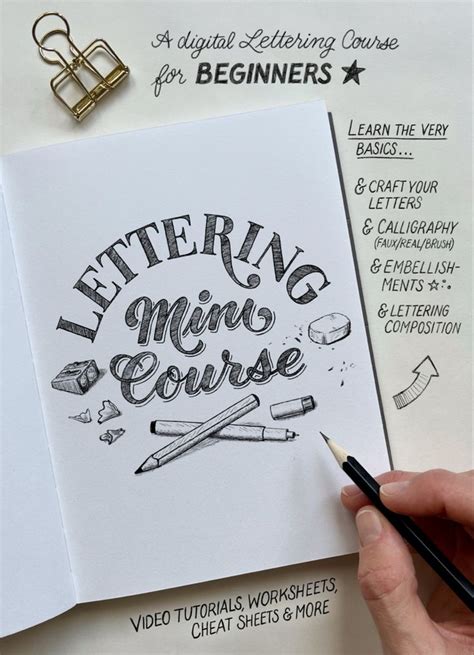 A digital Lettering Course
for BEGINNERS
LEARN THE VERY
BASICS...
& CRAFT YOUR
LETTERS
& CALLIGRAPHY
(FAUX/REAL/BRUSH)
& EMBELLISH-
MENTS
& LETTERING
COMPOSITION
LETTERING
Mini
Course
VIDEO TUTORIALS, WORKSHEETS,
CHEAT SHEETS & MORE